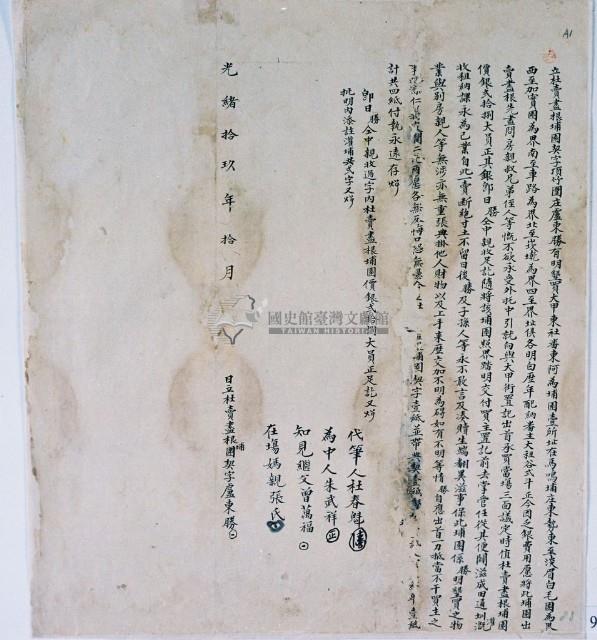 立杜賣盡根埔園契字頂竹圍庄盧東勝有明墾買大甲東社番東阿為埔園壹所址在馬鳴埔庄東勢東至淡眉白毛園為界
西至加寶園為界南至車路為界北至崁墘為界四至界址俟各明白歷年配納番主大租谷弍斗正今因乏銀費用愿將此埔園出
賣盡根先盡問房親叔兄弟侄人等慨不欲承受外托中引就向與大甲街置記出首承買當場三面議定時值杜賣盡根埔園
價銀弍拾捌大員正其銀即日勝仝中親收足訖隨將該埔園照界踏明交付買主置記前去掌管任從其便開滋成田通圳溉
收租納課永為己業自此一賣斷絕寸土不留日後勝及子孫人等永不敢言及湊贖生端翻異滋事保此埔園係勝明墾買之物
業與別房親人等無涉亦無重張典掛他人財物以及上手來歷交加不明為碍如有不明等情勝自應出首一力抵當不干買主之
事 仁 二比甘愿各無反悔口恐無憑今 埔園契字壹紙並帶 壹紙
計共四紙付執永遠存炤
即日勝仝中親收過字內杜賣盡根埔園價銀弍拾捌大員正足訖又炤
批明內添註 埔共弍字又炤
代筆人杜春
為中人朱武祥
知見繼父曾萬福
在場媽親張氏
光緒拾玖年拾月 日立杜賣盡根埔園契字盧東勝
國史館臺灣文獻館
TAIWAN HISTORICA
A1
9